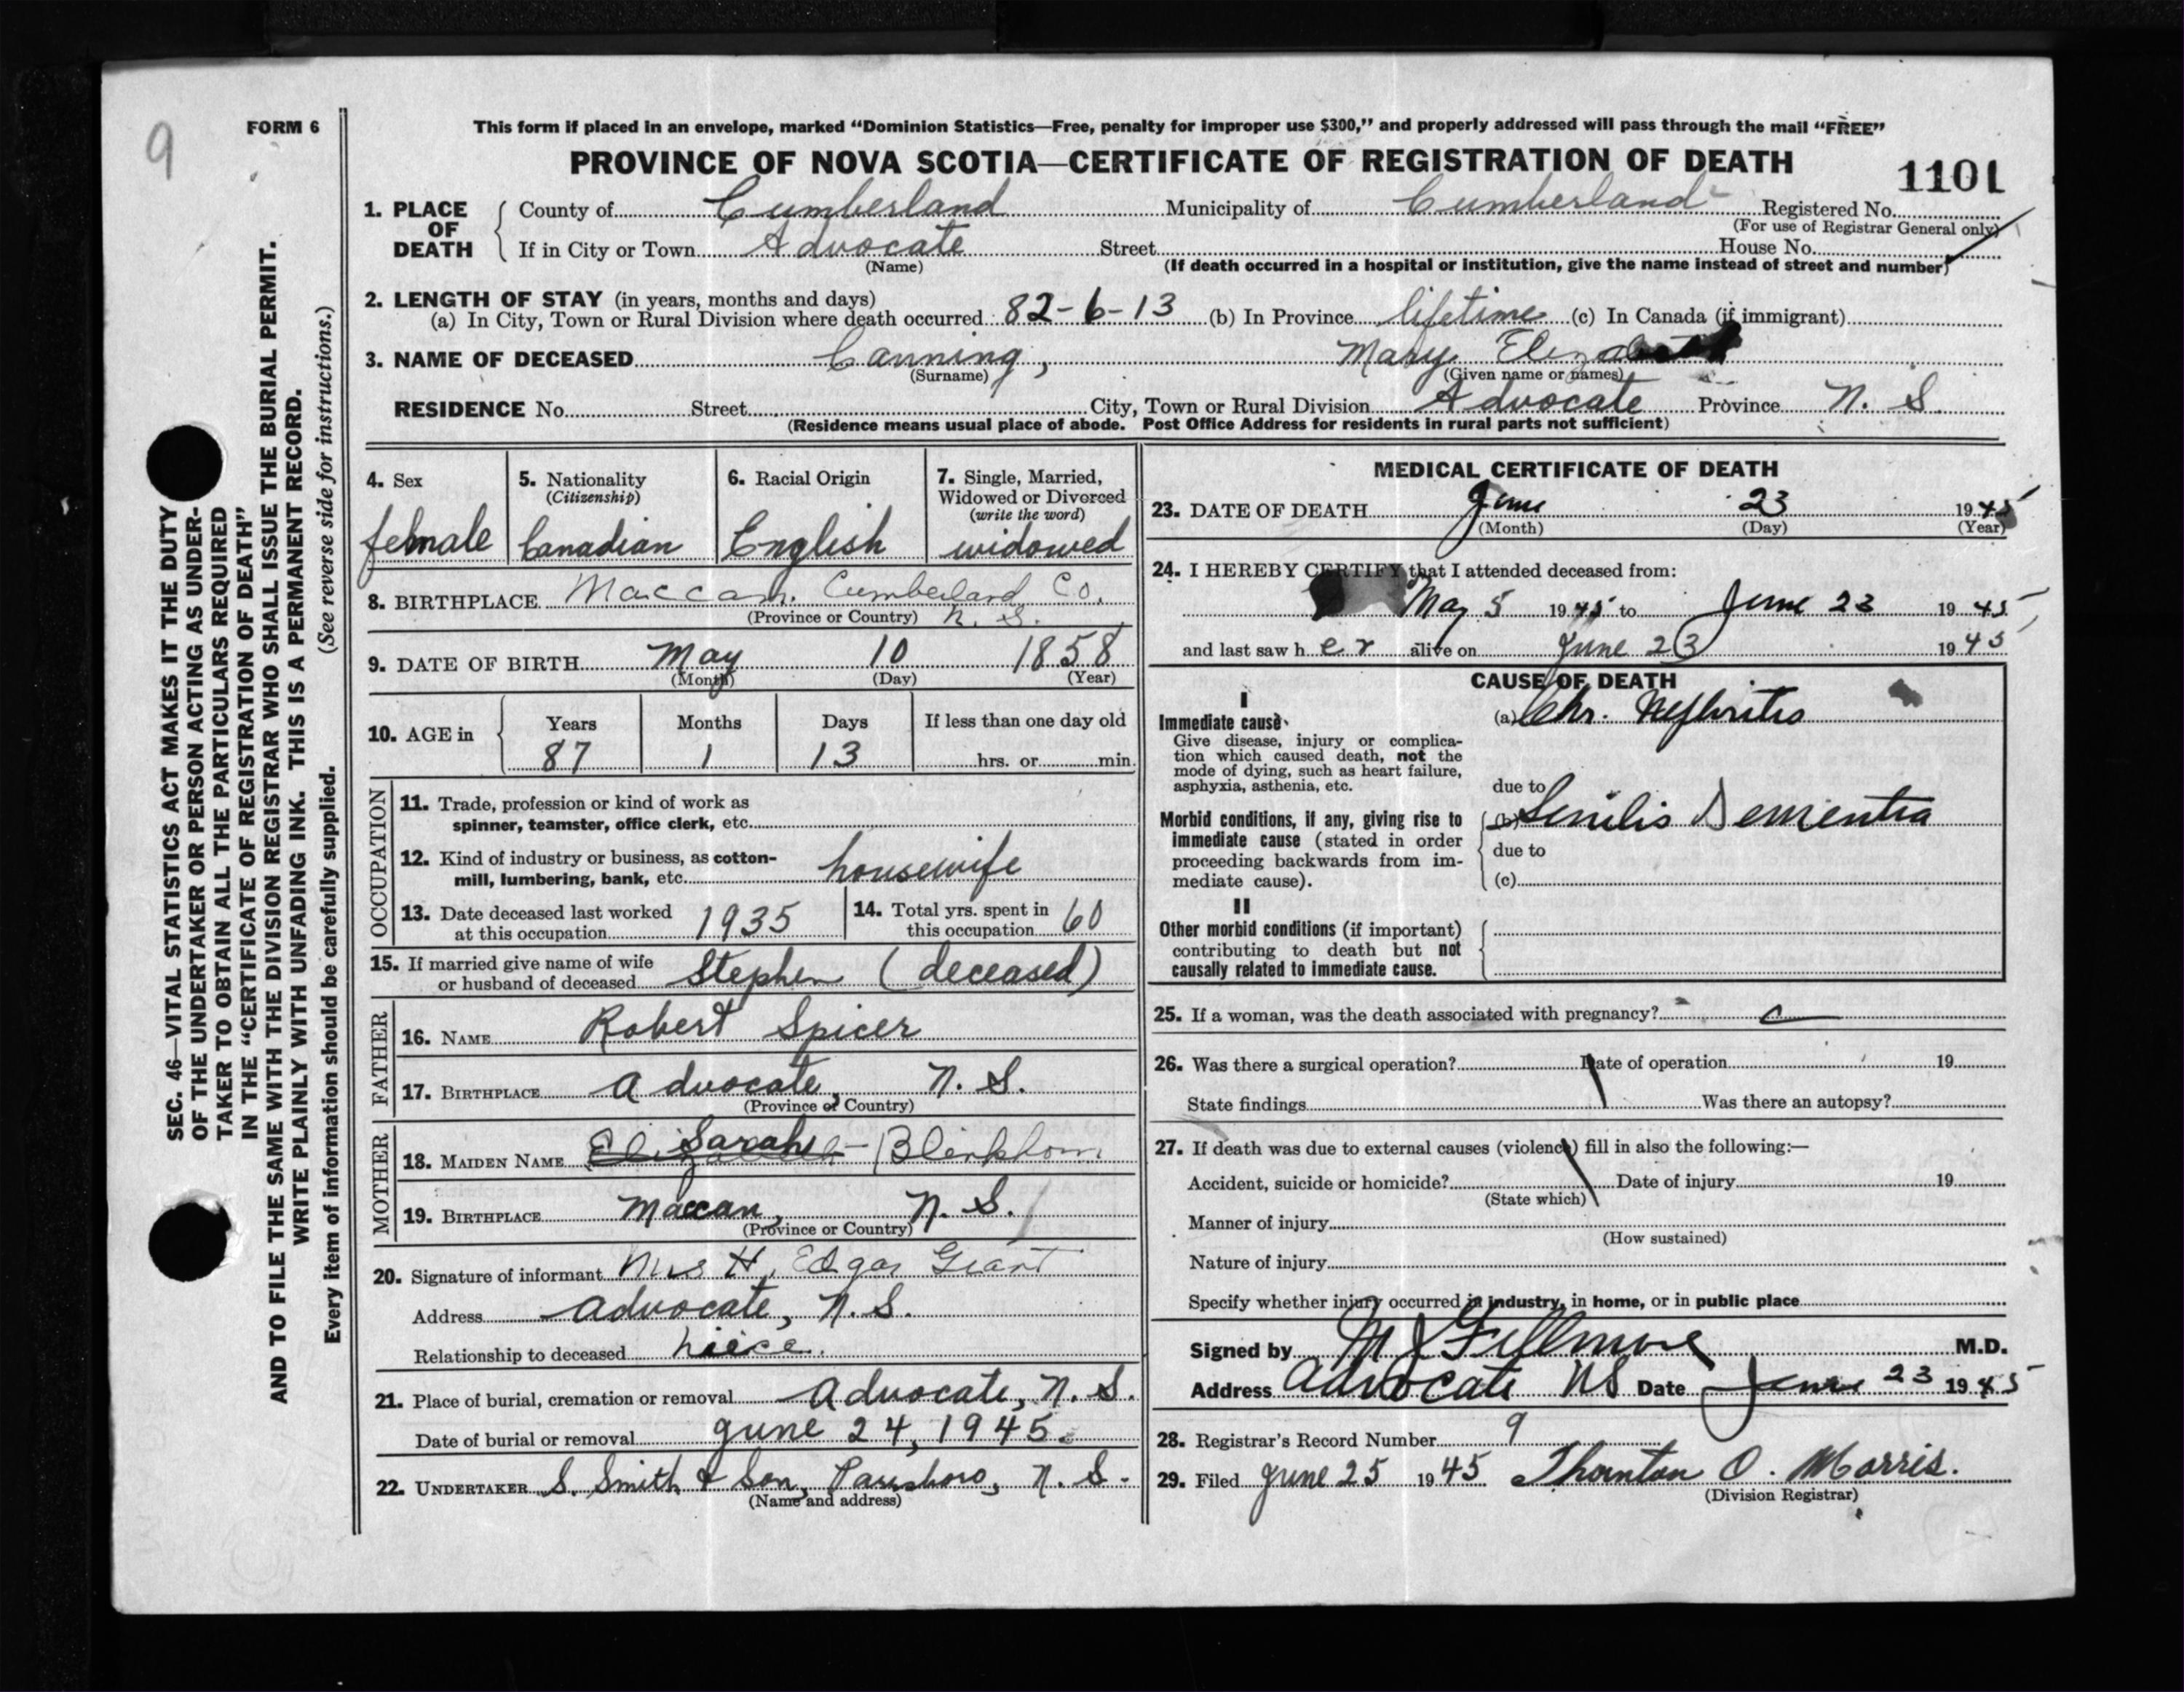 9
FORM 6
SEC. 46—VITAL STATISTICS ACT MAKES IT THE DUTY
OF THE UNDERTAKER OR PERSON ACTING AS UNDER-
TAKER TO OBTAIN ALL THE PARTICULARS REQUIRED
IN THE "CERTIFICATE OF REGISTRATION OF DEATH"
AND TO FILE THE SAME WITH THE DIVISION REGISTRAR WHO SHALL ISSUE THE BURIAL PERMIT.
WRITE PLAINLY WITH UNFADING INK. THIS IS A PERMANENT RECORD.
Every item of information should be carefully supplied. (See reverse side for instructions.)
This form if placed in an envelope, marked "Dominion Statistics—Free, penalty for improper use $300," and properly addressed will pass through the mail "FREE"
PROVINCE OF NOVA SCOTIA—CERTIFICATE OF REGISTRATION OF DEATH
1101
1. PLACE OF DEATH County of Cumberland Municipality of Cumberland Registered No.
(For use of Registrar General only)
If in City or Town Advocate Street House No.
(Name) (If death occurred in a hospital or institution, give the name instead of street and number)
2. LENGTH OF STAY (in years, months and days)
(a) In City, Town or Rural Division where death occurred 82-6-13 (b) In Province lifetime (c) In Canada (if immigrant)
3. NAME OF DECEASED Canning, Mary Elizabeth
(Surname) (Given name or names)
RESIDENCE No. Street City, Town or Rural Division Advocate Province N. S.
(Residence means usual place of abode. Post Office Address for residents in rural parts not sufficient)
4. Sex
female
5. Nationality
(Citizenship)
Canadian
6. Racial Origin
English
7. Single, Married,
Widowed or Divorced
(write the word)
widowed
8. BIRTHPLACE Maccan. Cumberland Co.
(Province or Country) N. S.
9. DATE OF BIRTH May 10 1858
(Month) (Day) (Year)
10. AGE in Years Months Days If less than one day old
87 1 13 hrs. or min.
OCCUPATION
11. Trade, profession or kind of work as
spinner, teamster, office clerk, etc.
12. Kind of industry or business, as cotton-
mill, lumbering, bank, etc. housewife
13. Date deceased last worked
at this occupation 1935
14. Total yrs. spent in
this occupation 60
15. If married give name of wife
or husband of deceased Stephen (deceased)
FATHER
16. NAME Robert Spicer
17. BIRTHPLACE Advocate, N. S.
(Province or Country)
MOTHER
18. MAIDEN NAME Elizabeth Sarah Blenkhorn
19. BIRTHPLACE Maccan, N. S.
(Province or Country)
20. Signature of informant Mrs H. Edgar Grant
Address Advocate, N. S.
Relationship to deceased niece.
21. Place of burial, cremation or removal Advocate, N. S.
Date of burial or removal June 24, 1945.
22. UNDERTAKER S. Smith & Son, Parrsboro, N. S.
(Name and address)
MEDICAL CERTIFICATE OF DEATH
23. DATE OF DEATH June 23 1945
(Month) (Day) (Year)
24. I HEREBY CERTIFY that I attended deceased from:
May 5 1945 to June 23 1945
and last saw her alive on June 23 1945
CAUSE OF DEATH
I
Immediate cause (a) Chr. Nephritis
Give disease, injury or complica-
tion which caused death, not the
mode of dying, such as heart failure,
asphyxia, asthenia, etc.
due to
Morbid conditions, if any, giving rise to
immediate cause (stated in order
proceeding backwards from im-
mediate cause).
(b) Senilis Dementia
due to
(c)
II
Other morbid conditions (if important)
contributing to death but not
causally related to immediate cause.
25. If a woman, was the death associated with pregnancy?
26. Was there a surgical operation? Date of operation 19
State findings Was there an autopsy?
27. If death was due to external causes (violence) fill in also the following:—
Accident, suicide or homicide? Date of injury 19
(State which)
Manner of injury
(How sustained)
Nature of injury
Specify whether injury occurred in industry, in home, or in public place
Signed by M J Fillmore M.D.
Address Advocate NS Date June 23 1945
28. Registrar's Record Number 9
29. Filed June 25 1945 Thornton O. Morris.
(Division Registrar)